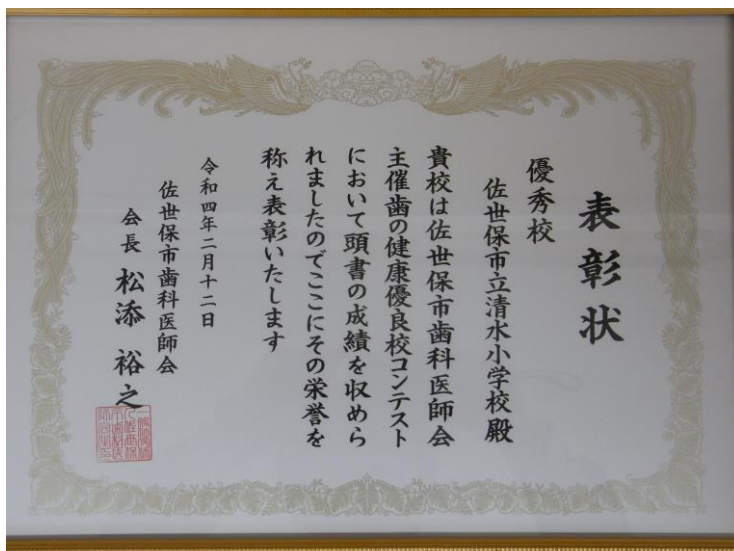 表彰状
優秀校
佐世保市立清水小学校殿
貴校は佐世保市歯科医師会
主催歯の健康優良校コンテスト
において頭書の成績を収めら
れましたのでここにその栄誉を
称え表彰いたします
令和四年二月十二日
佐世保市歯科医師会
会長 松添 裕之